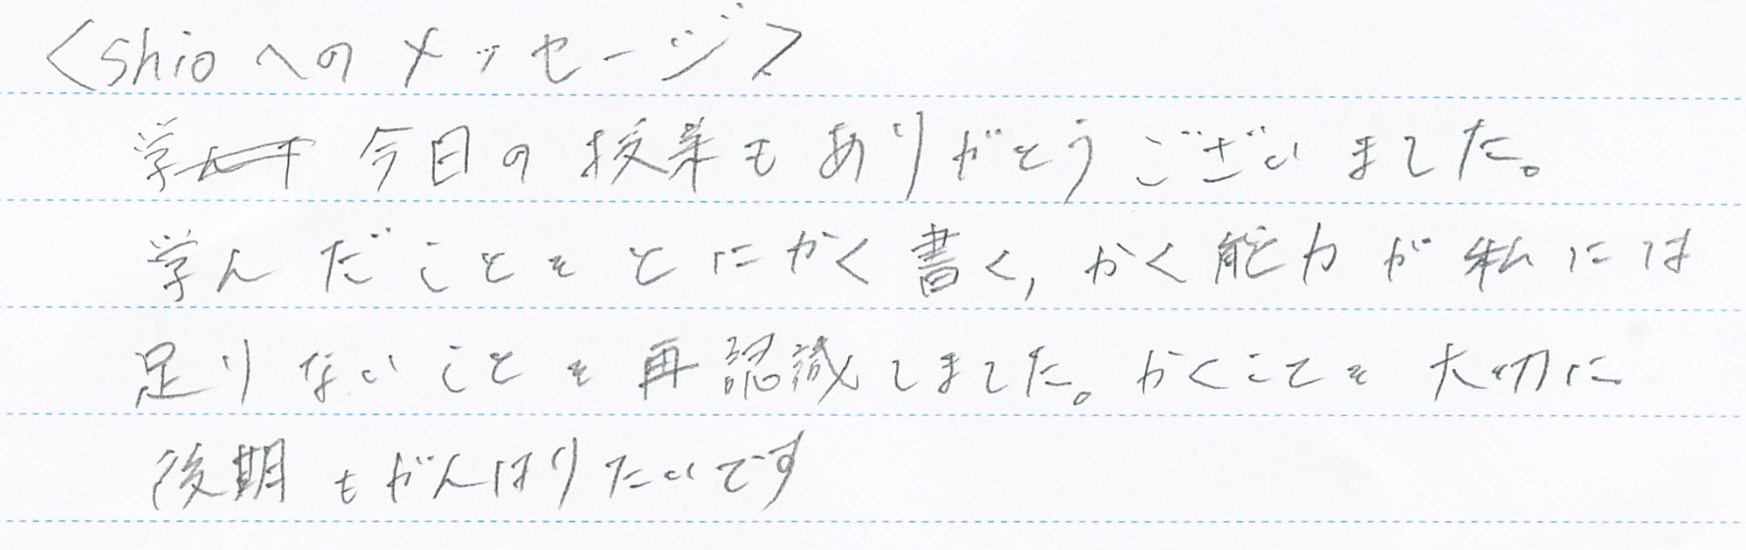 <shioへのメッセージ>
今日の授業もありがとうございました。
学んだことをとにかく書く,かく能力が私には
足りないことを再認識しました。かくことを大切に
後期もがんはりたいです